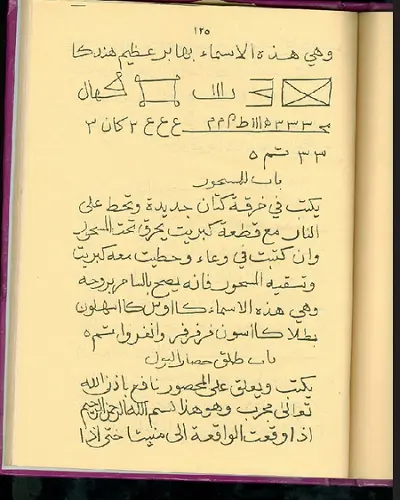 ١٢٥
وهي هذه الاسماء بهابر عظيم هندكا
كهال
ع ع ع ٢ كان ٣
٣ ٣ تم ٥
باب للمسحور
يكتب في خرقة كتان جديدة وتحط على
النار مع قطعة كبريت يحرق تحت المسحور
وان كتبت في وعاء وحطيت معه كبريت
وتسقيه المسحور فانه يصح بالساحر بروحه
وهي هذه الاسماء
باب طلق حصار البول
يكتب ويعلق على المحصور نافع باذن الله
تعالى مجرب وهو هذا بسم الله الرحمن الرحيم
اذا وقعت الواقعة الى منبثا حتى اذا